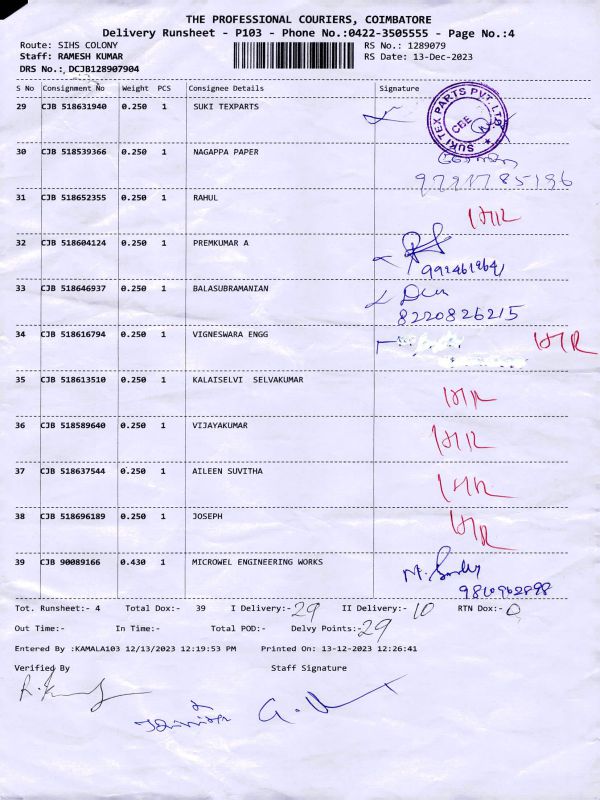 THE PROFESSIONAL COURIERS, COIMBATORE
Delivery Runsheet - P103 - Phone No.:0422-3505555 - Page No.:4
Route: SIHS COLONY RS No.: 1289079
Staff: RAMESH KUMAR RS Date: 13-Dec-2023
DRS No.: DCJB128907904
S No Consignment No Weight PCS Consignee Details Signature
29 CJB 518631940 0.250 1 SUKI TEXPARTS
SUKI TEX PARTS PVT. LTD. CBE
30 CJB 518539366 0.250 1 NAGAPPA PAPER
31 CJB 518652355 0.250 1 RAHUL
32 CJB 518604124 0.250 1 PREMKUMAR A
33 CJB 518646937 0.250 1 BALASUBRAMANIAN
8220826215
34 CJB 518616794 0.250 1 VIGNESWARA ENGG
35 CJB 518613510 0.250 1 KALAISELVI SELVAKUMAR
36 CJB 518589640 0.250 1 VIJAYAKUMAR
37 CJB 518637544 0.250 1 AILEEN SUVITHA
38 CJB 518696189 0.250 1 JOSEPH
39 CJB 90089166 0.430 1 MICROWEL ENGINEERING WORKS
Tot. Runsheet:- 4 Total Dox:- 39 I Delivery:- 29 II Delivery:- 10 RTN Dox:- 0
Out Time:- In Time:- Total POD:- Delvy Points:- 29
Entered By :KAMALA103 12/13/2023 12:19:53 PM Printed On: 13-12-2023 12:26:41
Verified By Staff Signature